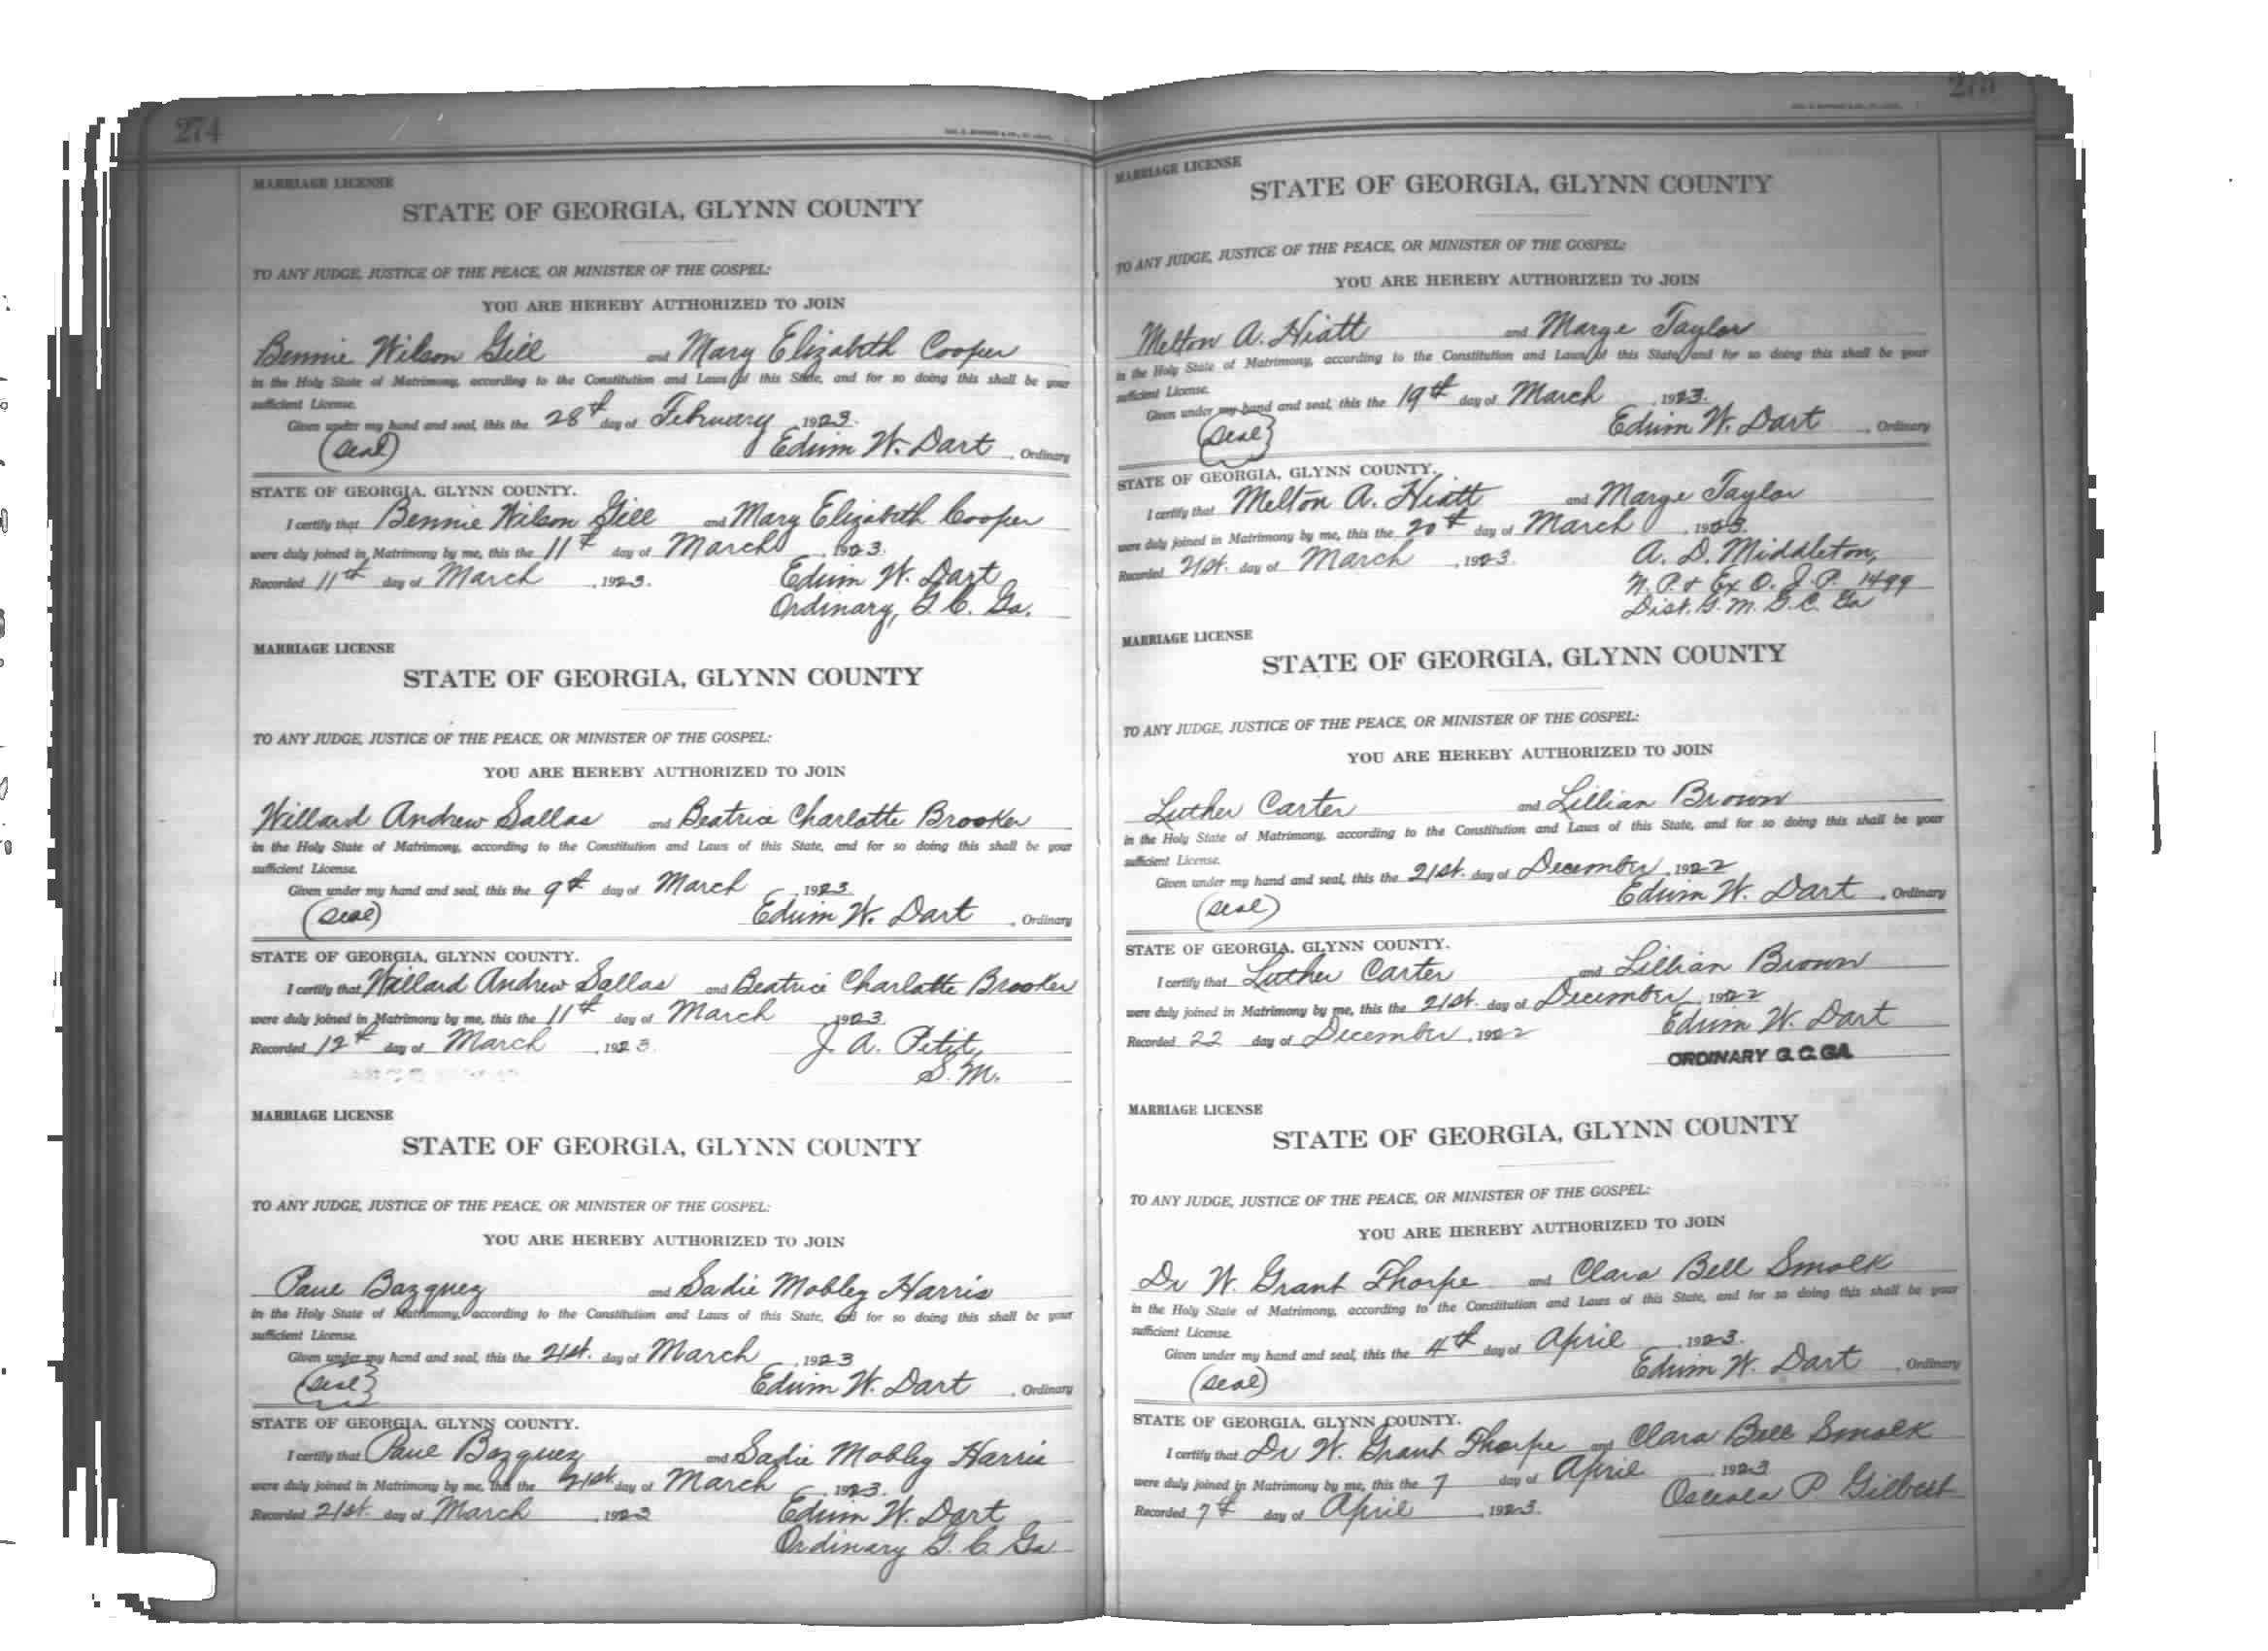 274
MARRIAGE LICENSE
STATE OF GEORGIA, GLYNN COUNTY
TO ANY JUDGE, JUSTICE OF THE PEACE, OR MINISTER OF THE GOSPEL:
YOU ARE HEREBY AUTHORIZED TO JOIN
Bennie Wilson Gill and Mary Elizabeth Cooper
in the Holy State of Matrimony, according to the Constitution and Laws of this State, and for so doing this shall be your
sufficient License.
Given under my hand and seal, this the 28th day of February, 1923.
(Seal) Edwin W. Dart, Ordinary
STATE OF GEORGIA, GLYNN COUNTY.
I certify that Bennie Wilson Gill and Mary Elizabeth Cooper
were duly joined in Matrimony by me, this the 11th day of March, 1923.
Recorded 11th day of March, 1923. Edwin W. Dart
Ordinary, G. C. Ga.
MARRIAGE LICENSE
STATE OF GEORGIA, GLYNN COUNTY
TO ANY JUDGE, JUSTICE OF THE PEACE, OR MINISTER OF THE GOSPEL:
YOU ARE HEREBY AUTHORIZED TO JOIN
Willard Andrew Sallas and Beatrice Charlotte Brooker
in the Holy State of Matrimony, according to the Constitution and Laws of this State, and for so doing this shall be your
sufficient License.
Given under my hand and seal, this the 9th day of March, 1923.
(Seal) Edwin W. Dart, Ordinary
STATE OF GEORGIA, GLYNN COUNTY.
I certify that Willard Andrew Sallas and Beatrice Charlotte Brooker
were duly joined in Matrimony by me, this the 11th day of March, 1923.
Recorded 12th day of March, 1923. J. A. Petit,
S. M.
MARRIAGE LICENSE
STATE OF GEORGIA, GLYNN COUNTY
TO ANY JUDGE, JUSTICE OF THE PEACE, OR MINISTER OF THE GOSPEL:
YOU ARE HEREBY AUTHORIZED TO JOIN
Paul Bazquez and Sadie Mobley Harris
in the Holy State of Matrimony, according to the Constitution and Laws of this State, and for so doing this shall be your
sufficient License.
Given under my hand and seal, this the 21st. day of March, 1923
(Seal) Edwin W. Dart, Ordinary
STATE OF GEORGIA, GLYNN COUNTY.
I certify that Paul Bazquez and Sadie Mobley Harris
were duly joined in Matrimony by me, this the 21st day of March, 1923.
Recorded 21st. day of March, 1923 Edwin W. Dart
Ordinary G. C. Ga
MARRIAGE LICENSE
STATE OF GEORGIA, GLYNN COUNTY
TO ANY JUDGE, JUSTICE OF THE PEACE, OR MINISTER OF THE GOSPEL:
YOU ARE HEREBY AUTHORIZED TO JOIN
Melton A. Hiatt and Marge Taylor
in the Holy State of Matrimony, according to the Constitution and Laws of this State, and for so doing this shall be your
sufficient License.
Given under my hand and seal, this the 19th day of March, 1923.
(Seal) Edwin W. Dart, Ordinary
STATE OF GEORGIA, GLYNN COUNTY.
I certify that Melton A. Hiatt and Marge Taylor
were duly joined in Matrimony by me, this the 20th day of March, 1923.
Recorded 21st. day of March, 1923. A. D. Middleton,
N. P. & Ex O. J. P. 1499
Dist. G. M. G. C. Ga
MARRIAGE LICENSE
STATE OF GEORGIA, GLYNN COUNTY
TO ANY JUDGE, JUSTICE OF THE PEACE, OR MINISTER OF THE GOSPEL:
YOU ARE HEREBY AUTHORIZED TO JOIN
Luther Carter and Lillian Brown
in the Holy State of Matrimony, according to the Constitution and Laws of this State, and for so doing this shall be your
sufficient License.
Given under my hand and seal, this the 21st. day of December, 1922
(Seal) Edwin W. Dart, Ordinary
STATE OF GEORGIA, GLYNN COUNTY.
I certify that Luther Carter and Lillian Brown
were duly joined in Matrimony by me, this the 21st. day of December, 1922
Recorded 22 day of December, 1922 Edwin W. Dart
ORDINARY G. C. GA.
MARRIAGE LICENSE
STATE OF GEORGIA, GLYNN COUNTY
TO ANY JUDGE, JUSTICE OF THE PEACE, OR MINISTER OF THE GOSPEL:
YOU ARE HEREBY AUTHORIZED TO JOIN
Dr W. Grant Thorpe and Clara Bell Smolk
in the Holy State of Matrimony, according to the Constitution and Laws of this State, and for so doing this shall be your
sufficient License.
Given under my hand and seal, this the 4th day of April, 1923.
(Seal) Edwin W. Dart, Ordinary
STATE OF GEORGIA, GLYNN COUNTY.
I certify that Dr W. Grant Thorpe and Clara Bell Smolk
were duly joined in Matrimony by me, this the 7 day of April, 1923
Recorded 7th day of April, 1923. Osceola P Gilbert